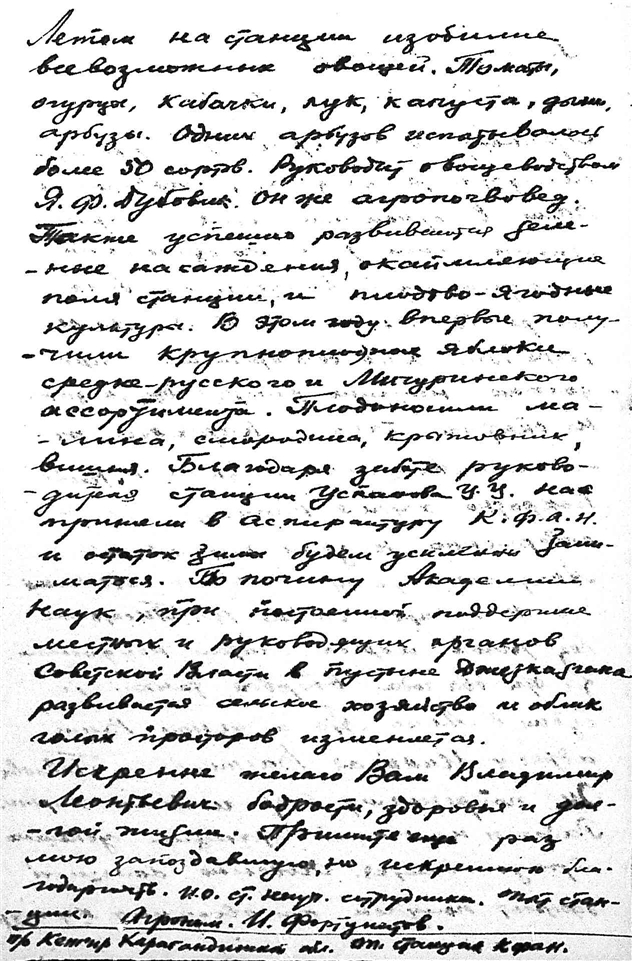 Летом на станции изобилие
всевозможных овощей. Томаты,
огурцы, кабачки, лук, капуста, дыни,
арбузы. Одних арбузов испытывалось
более 50 сортов. Руководит овощеводством
Я. Ф. Бубовик. Он же агропочвовед.
Также успешно развиваются зеле-
-ные насаждения, окаймляющие
поля станции, и плодово-ягодные
культуры. В этом году впервые полу-
-чили крупноплодные яблоки
средне-русского и Мичуринского
ассортимента. Плодоносили ма-
-лина, смородина, крыжовник,
вишня. Благодаря заботе руково-
-дителя станции Успанова У.У. нас
приняли в аспирантуру К.Ф.А.Н.
и остаток зимы будем усиленно зани-
маться. По почину Академии
Наук, при постоянной поддержке
местных и руководящих органов
Советской Власти в пустыне Джезказгана
развивается сельское хозяйство и облик
голых просторов изменяется.
Искренне желаю Вам Владимир
Леонтьевич бодрости, здоровья и дол-
-гой жизни. Примите еще раз
мою запоздавшую, но искреннюю бла-
годарность. И.о. ст. научн. сотрудника стан-
-ции Агроном. И. Фортунатов.
п/о Кенгир Карагандинская обл. станция Кфан.